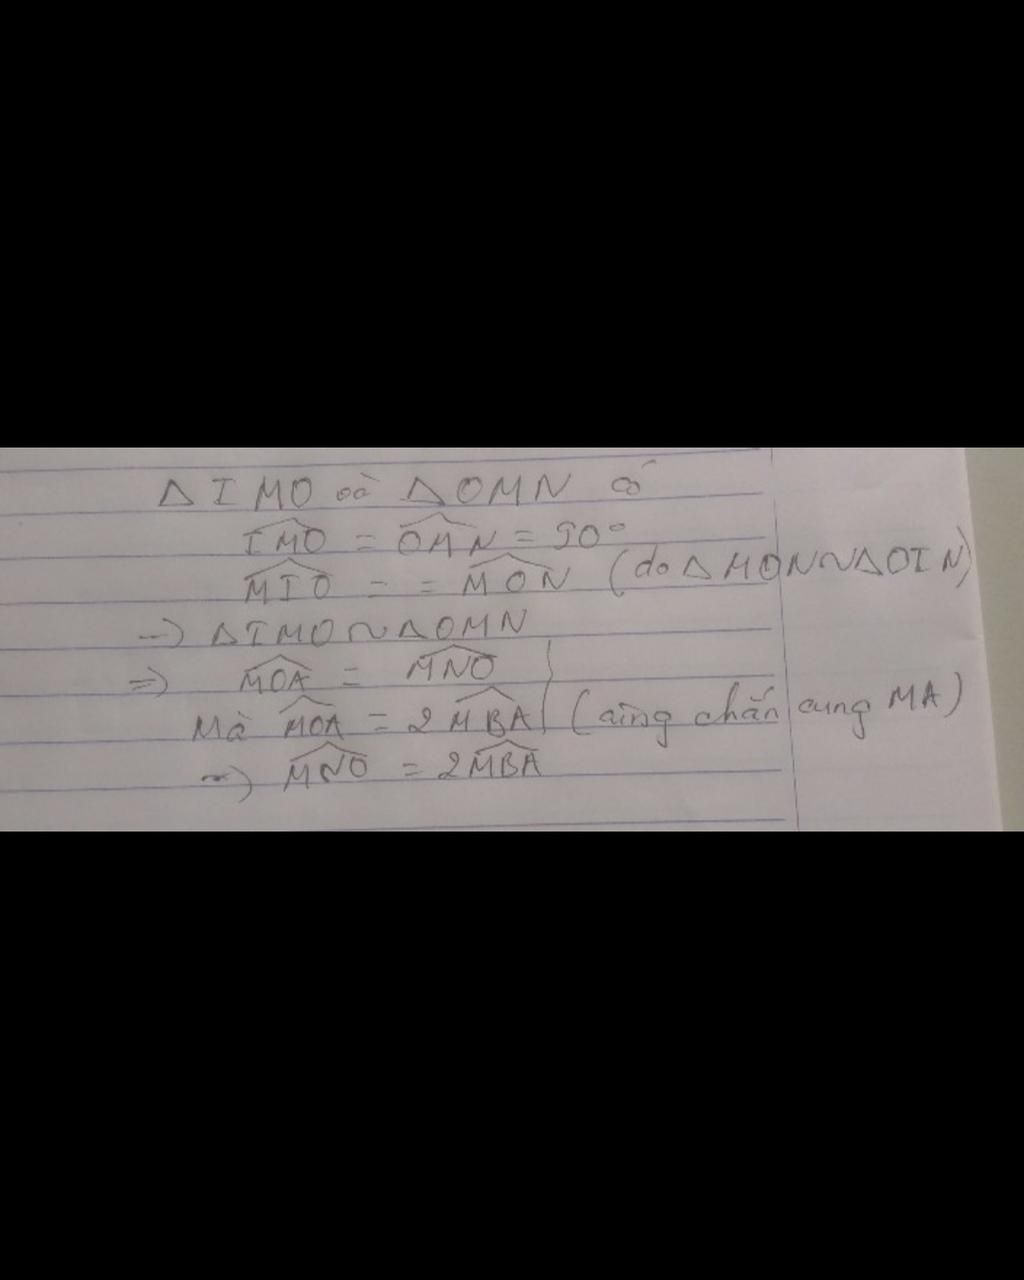 Δ IMO và Δ OMN có
\widehat{IMO} = \widehat{OMN} = 90°
\widehat{MIO} = = \widehat{MON} (do Δ MON ~ Δ OIN)
→ Δ IMO ~ Δ OMN
⇒ \widehat{MOA} = \widehat{MNO}
Mà \widehat{MOA} = 2 \widehat{MBA} (cùng chắn cung MA)
⇒ \widehat{MNO} = 2 \widehat{MBA}